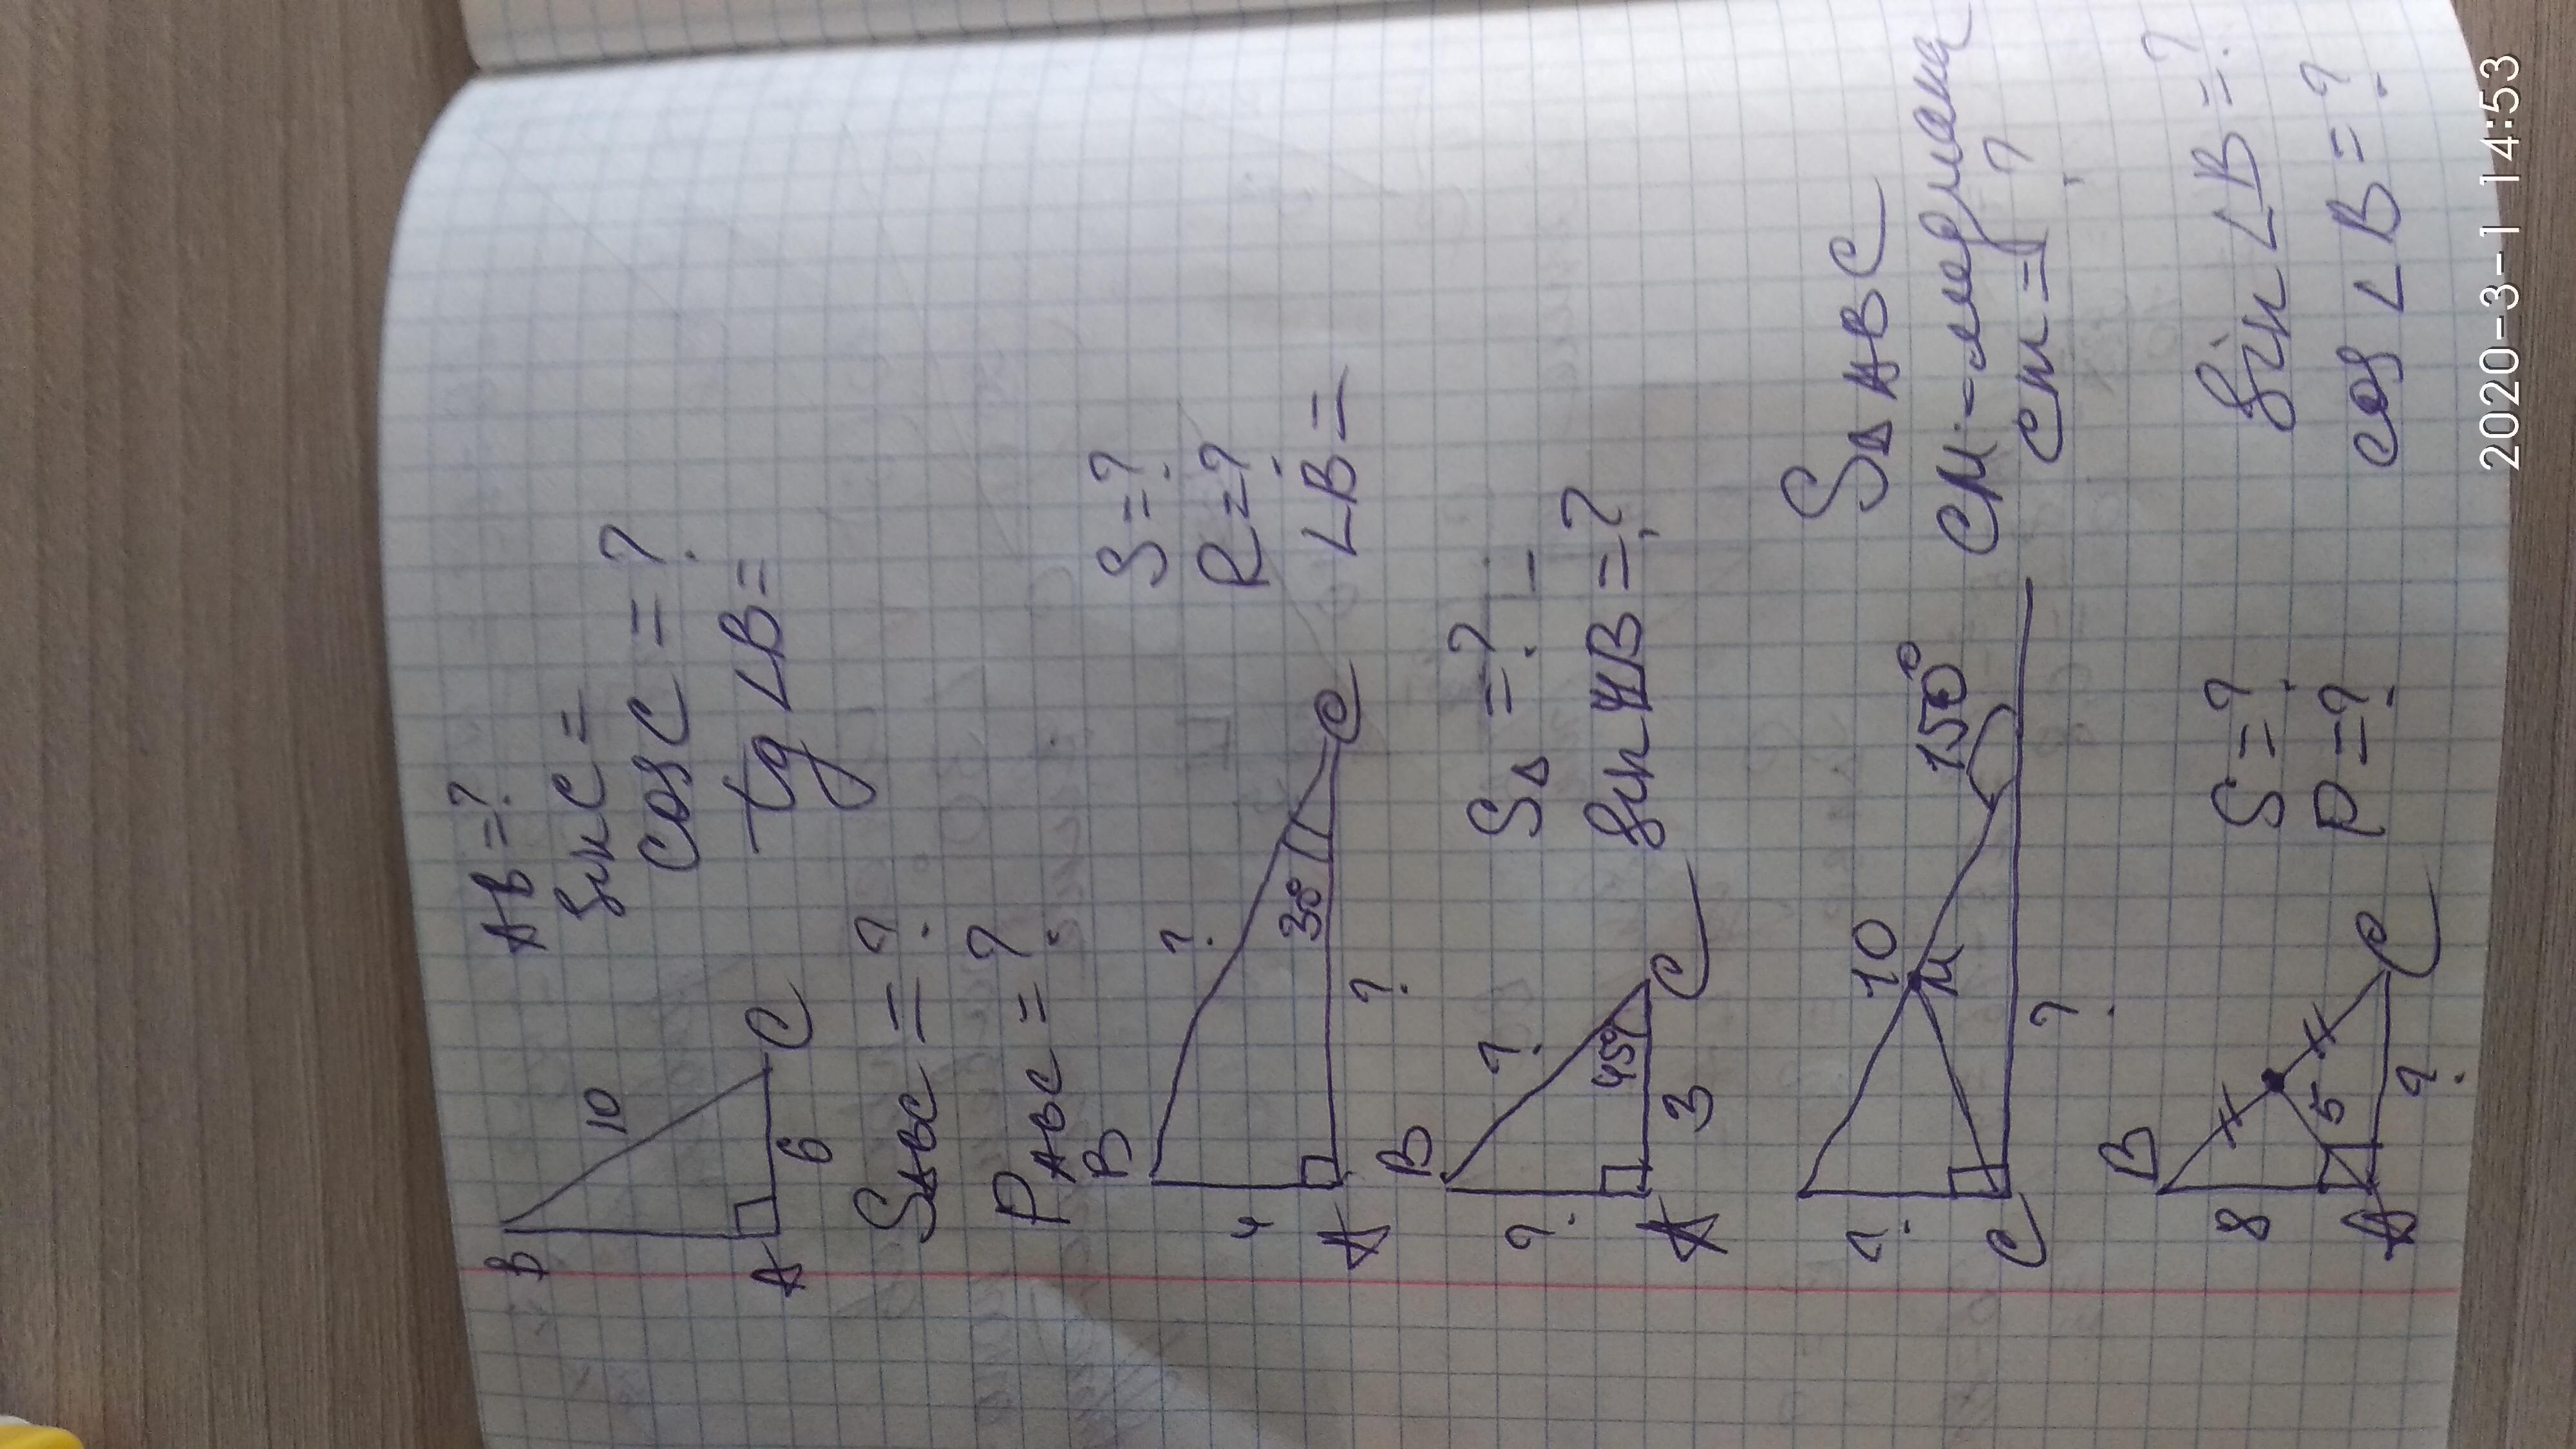 B
10
A
6
C
AB=?
sin C =
cos C = ?
tg ∠B=
SABC = ?
PABC = ?
B
?
4
30°
A
?
C
S=?
R=?
∠B=
B
?
?
45°
A
3
C
S△ =?
sin ∠B=?
?
10
M
150°
C
?
S△ABC
CM-медиана
CM=?
B
8
5
A
?
C
S=?
P=?
Sin ∠B=?
cos ∠B=?
2020-3-1 14:53